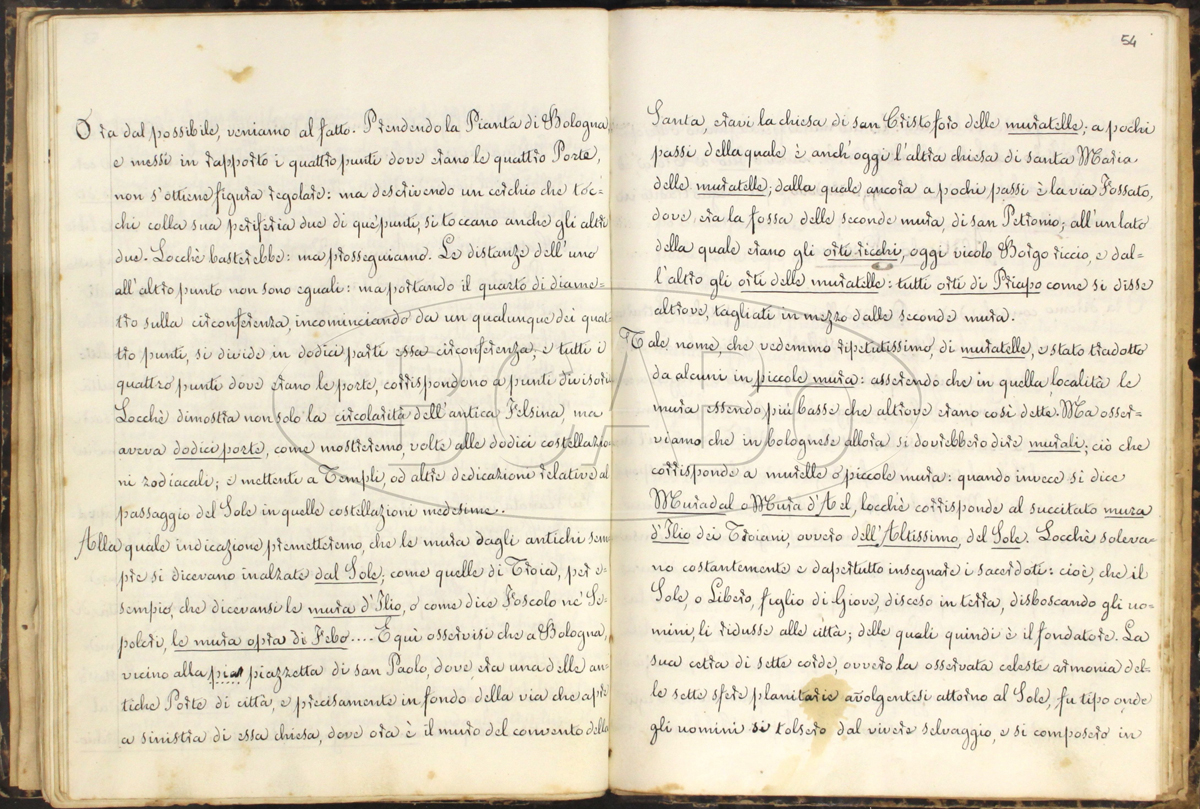 Ora dal possibile, veniamo al fatto. Prendendo la Pianta di Bologna
e messi in rapporto i quattro punti dove erano le quattro Porte,
non s'ottiene figura regolare: ma descrivendo un cerchio che toc=
chi colla sua periferia due di que' punti, si toccano anche gli altri
due. Locchè basterebbe: ma prosseguiamo. Le distanze dell'uno
all'altro punto non sono eguali: ma portando il quarto di diame=
tro sulla circonferenza, incominciando da un qualunque dei quat
tro punti, si divide in dodici parti essa circonferenza, e tutti i
quattro punti dove erano le porte, corrispondono a punti divisori
Locchè dimostra non solo la circolarità dell'antica Felsina, ma
aveva dodici porte, come mostreremo, volte alle dodici costellazio
ni zodiacali; e mettenti a Templi, od altre dedicazioni relative al
passaggio del Sole in quelle costellazioni medesime..
Alla quale indicazione premetteremo, che le mura dagli antichi sem
pre si dicevano inalzate dal Sole; come quelle di Troia, per e=
sempio, che dicevansi le mura d'Ilio, o come dice Foscolo ne' Se=
polcri, le mura opra di Febo.... E qui osservisi che a Bologna,
vicino alla piazzetta di san Paolo, dove era una delle an=
tiche Porte di città, e precisamente in fondo della via che apre
a sinistra di essa chiesa, dove ora è il muro del convento della
54
Santa, eravi la chiesa di san Cristoforo delle muratelle; a pochi
passi della quale è anch'oggi l'altra chiesa di santa Maria
delle muratelle; dalla quale ancora a pochi passi è la via Fossato,
dove era la fossa delle seconde mura, di san Petronio; all'un lato
della quale erano gli orti ricchi, oggi vicolo Borgo riccio, e dal=
l'altro gli orti delle muratelle: tutti orti di Priapo come si disse
altrove, tagliati in mezzo dalle seconde mura.
Tale nome, che vedemmo ripetutissimo, di muratelle, è stato tradotto
da alcuni in piccole mura: asserendo che in quella località le
mura essendo più basse che altrove erano così dette. Ma osser=
viamo, che in bolognese allora si dovrebbero dire murali; ciò che
corrisponde a murelle o piccole mura: quando invece si dice
Muradal o Mura d'Ael, locchè corrisponde al succitato mura
d'Ilio dei Troiani, ovvero dell'Altissimo, del Sole. Locchè soleva=
no costantemente e dapertutto insegnare i sacerdoti: cioè, che il
Sole, o Libero, figlio di Giove, disceso in terra, disboscando gli uo=
mini, li ridusse alle città; delle quali quindi è il fondatore. La
sua cetra di sette corde, ovvero la osservata celeste armonia del=
le sette sfere planitarie avolgentesi attorno al Sole, fu tipo onde
gli uomini si tolsero dal vivere selvaggio, e si composero in